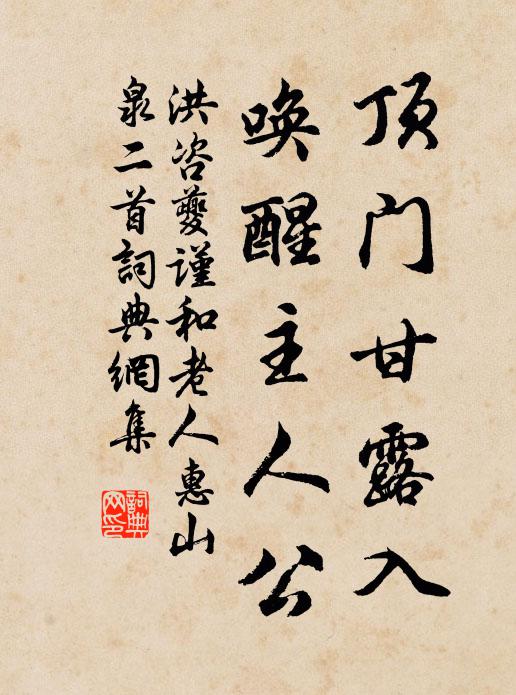 顶门甘露入
唤醒主人公
洪咨夔谨和老人惠山
泉二首詞典網集
詞典
网印